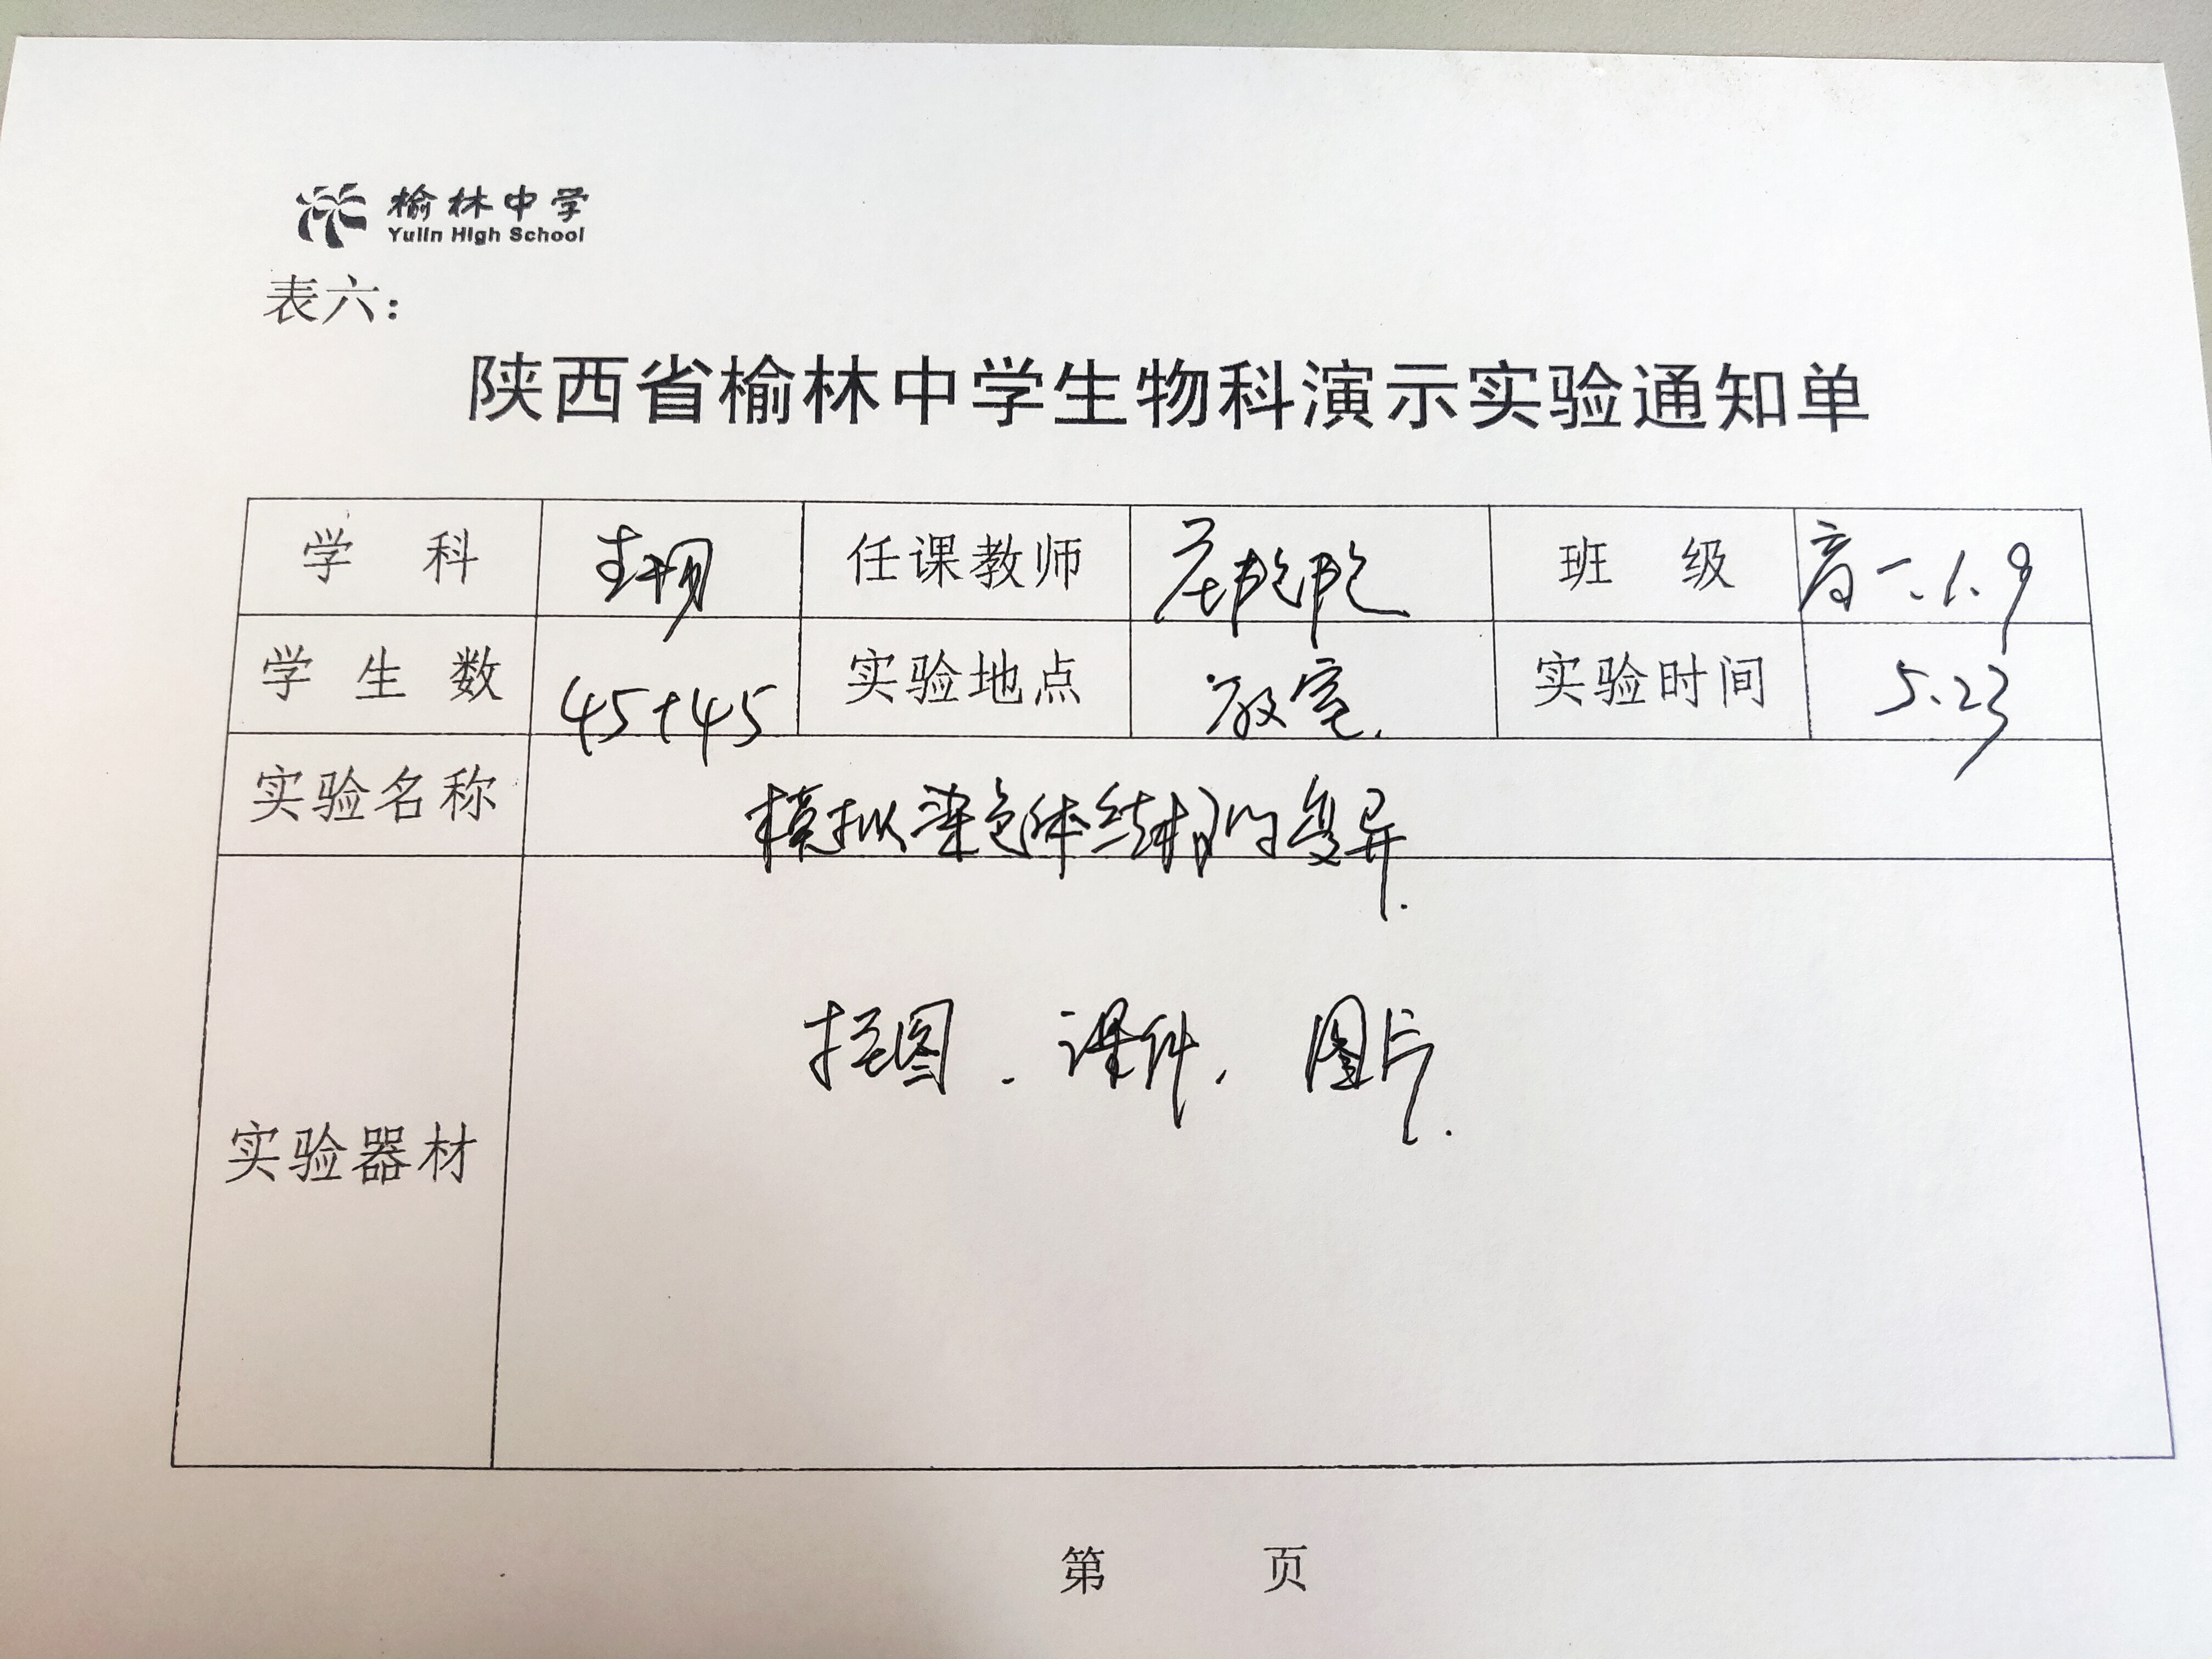 榆林中学
Yulin High School
表六：
陕西省榆林中学生物科演示实验通知单
学 科 生物 任课教师 班 级 高一.1.9
学 生 数 45+45 实验地点 教室. 实验时间 5.23
实验名称 模拟染色体结构的变异.
挂图. 课件, 图片.
实验器材
第 页